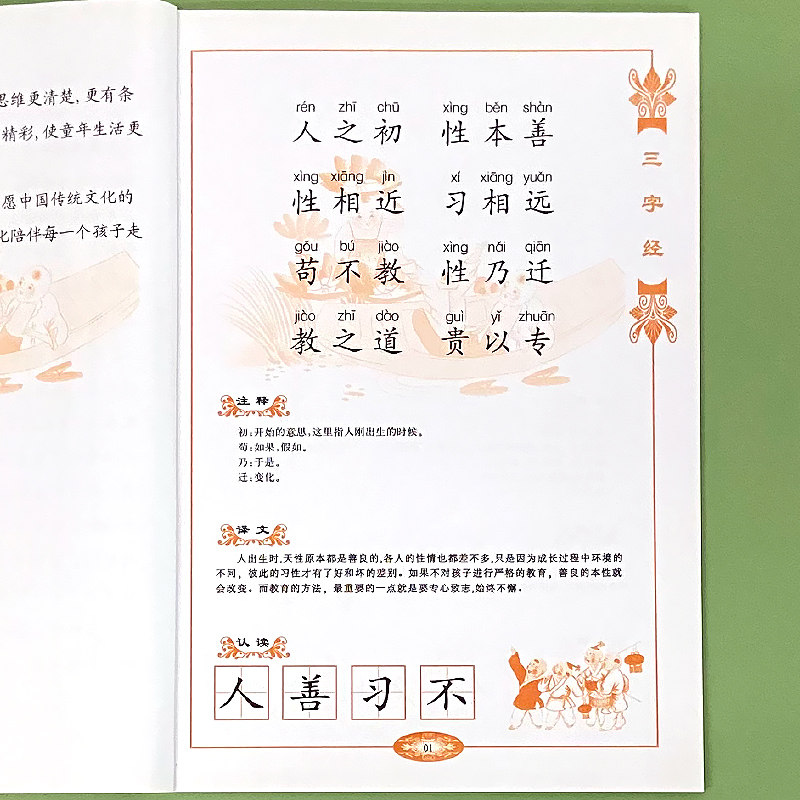 思维更清楚,更有条
精彩,使童年生活更
愿中国传统文化的
化陪伴每一个孩子走
rén zhī chū xìng běn shàn
人之初 性本善
xìng xiāng jìn xí xiāng yuǎn
性相近 习相远
gǒu bú jiào xìng nǎi qiān
苟不教 性乃迁
jiào zhī dào guì yǐ zhuān
教之道 贵以专
三字经
注释
初:开始的意思,这里指人刚出生的时候。
苟:如果,假如。
乃:于是。
迁:变化。
译文
人出生时,天性原本都是善良的,各人的性情也都差不多,只是因为成长过程中环境的
不同,彼此的习性才有了好和坏的差别。如果不对孩子进行严格的教育,善良的本性就
会改变。而教育的方法,最重要的一点就是要专心致志,始终不懈。
认读
人 善 习 不
01